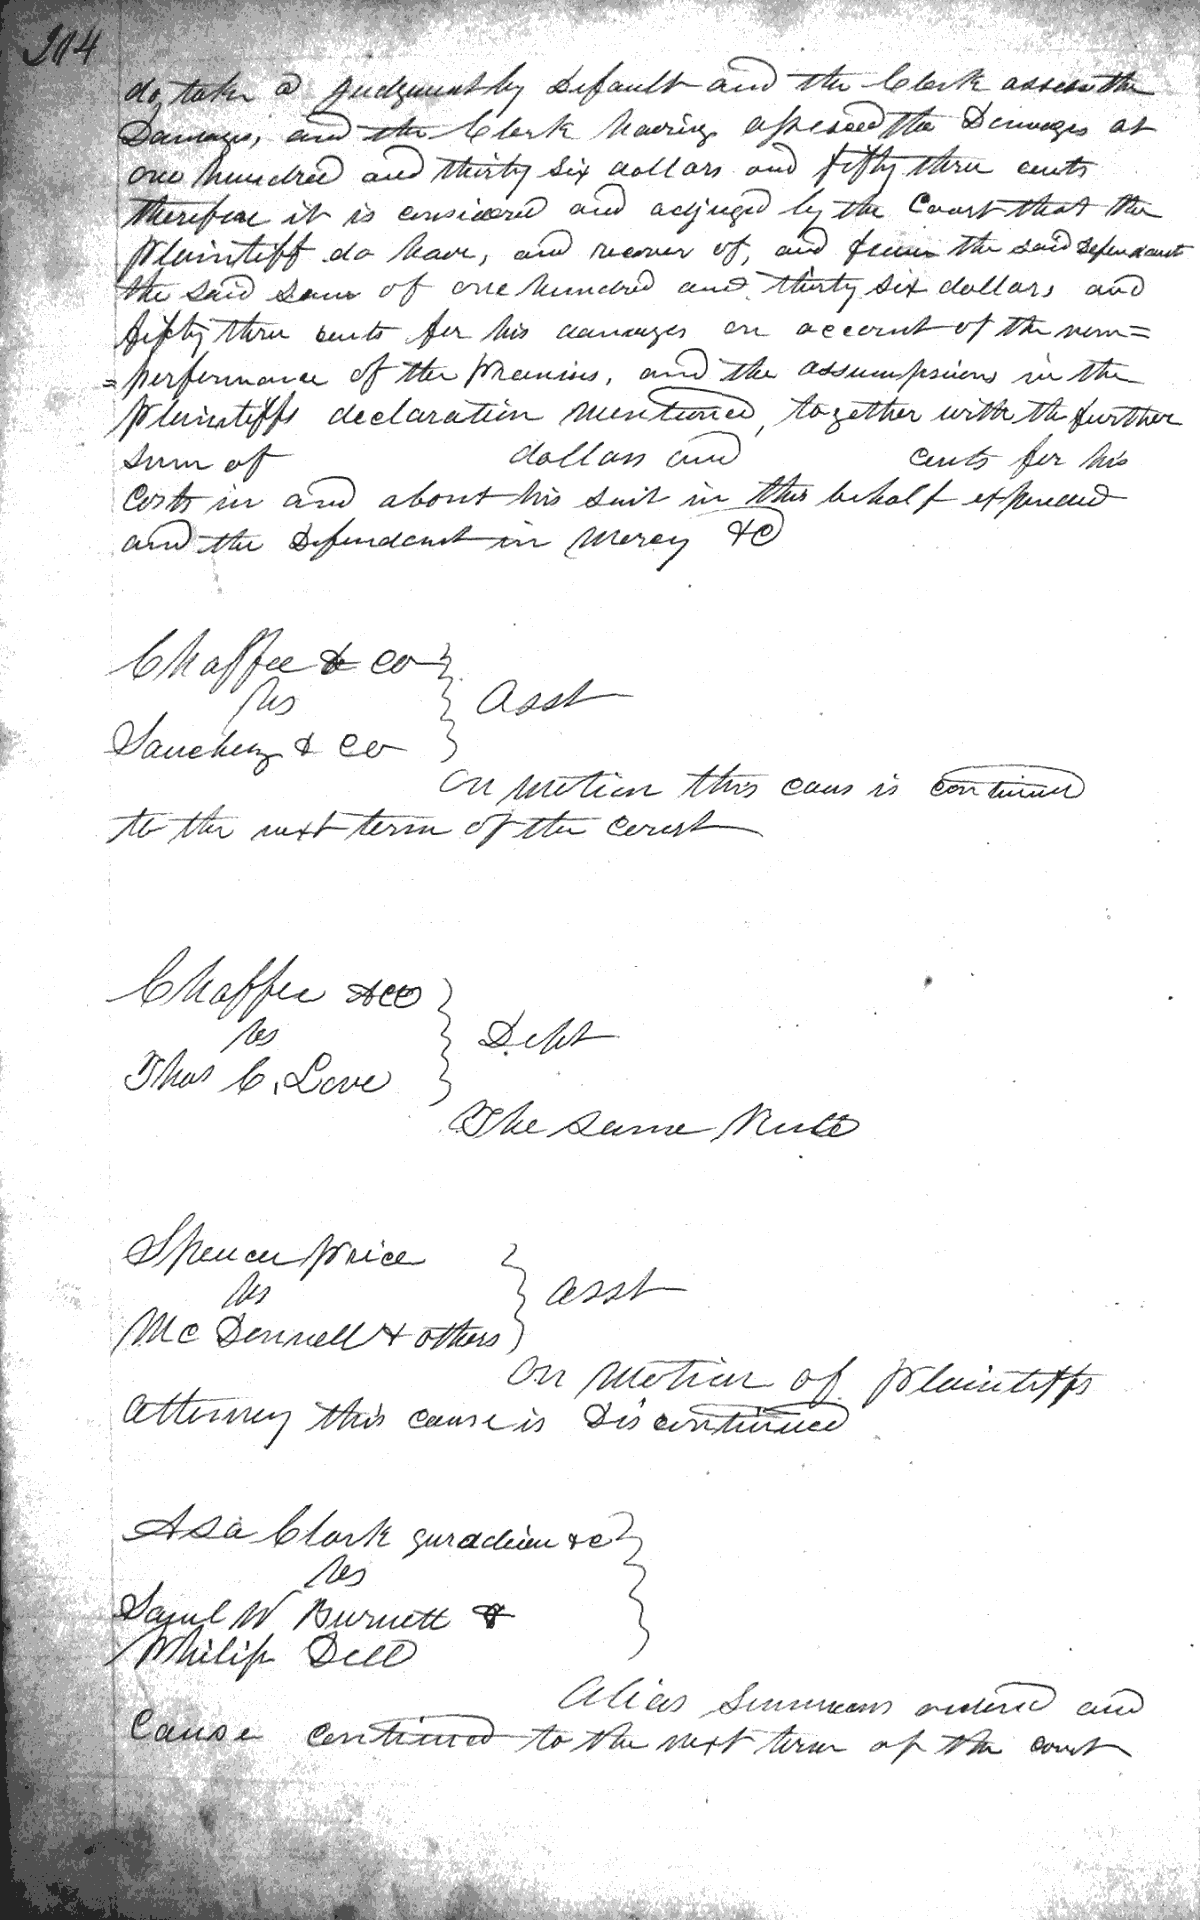 204
do, take a judgment by Default and the Clerk assess the
Damages, and the Clerk having assessed the Damages at
one hundred and thirty six dollars and fifty three cents
therefore it is considered and adjuged by the Court that the
Plaintiff do have, and recover of, and from the said Defendant
the said sum of one hundred and thirty six dollars and
fifty three cents for his damages on account of the non=
=performance of the Promises, and the assumpsions in the
Plaintiffs declaration mentioned, together with the further
sum of dollars and cents for his
Costs in and about his suit in this behalf expended
and the Defendant in mercy &c
Chaffee & co
vs
Sanchez & Co
Asst
On motion this caus is continued
to the next term of the court
Chaffee &co
vs
Thos C. Love
Debt
The same Rule
Spencer Price
vs
Mc Donnell & others
Asst
On Motion of Plaintiffs
Attorney this cause is Discontinued
Asa Clark guradian &c
vs
Saml W Burnett &
Philip Dell
Alias Summons ordered and
Cause continued to the next term of the court